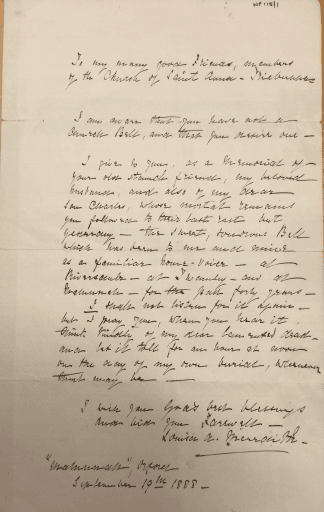 NP118/1
To my many good Friends, members
of the Church of Saint Anne - Triabunna
I am aware that you have not a
Church Bell, and that you desire one -
I give to you, as a Memorial of
your old staunch friend, my beloved
husband, and also of my dear
son Charles, whose mortal remains
you followed to their last rest but
yesterday - the sweet, sonorous Bell
which has been to me and mine
as a familiar home-voice - at
Riversdale - at Twamley - and at
- for the past forty years -
I shall not listen for it again -
but I pray you, when you hear it,
think kindly of my dear lamented dead -
and let it toll for an hour at noon
on the day of my own burial, whenever
that may be -
I wish you God's best blessings
and bid you Farewell -
Louisa A. Meredith.
"Malunnah", Orford
September 19th 1888 -